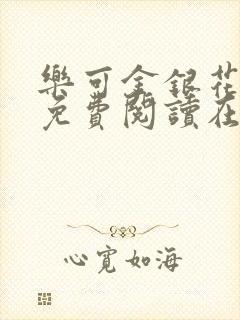 樂可金銀花
免費閱讀在
心寬如海